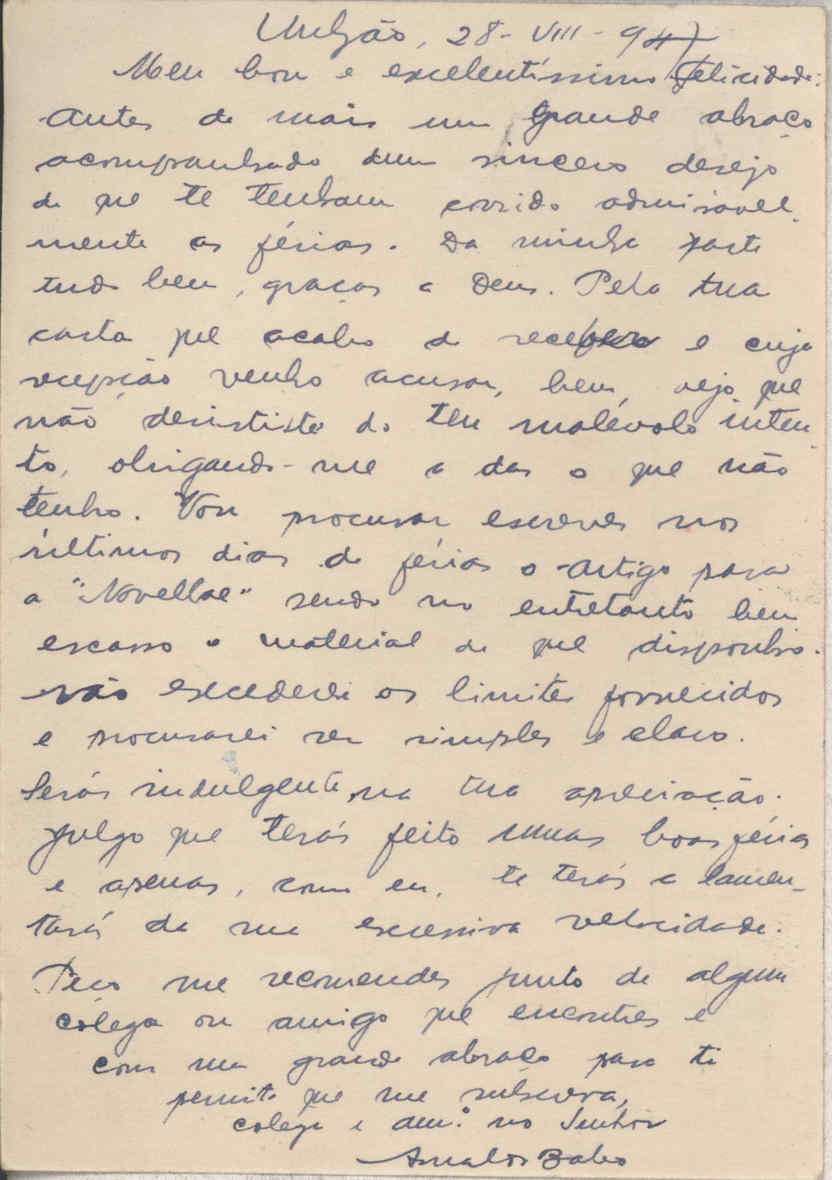 Unhão, 28-VIII-947
Meu bom e excelentíssimo Felicidade:
Antes de mais um grande abraço
acompanhado dum sincero desejo
de que te tenham corrido admiravel-
mente as férias. Da minha parte
tudo bem, graças a Deus. Pela tua
carta que acabo de receber e cuja
recepção venho acusar, bem vejo que
não desististe do teu malévolo inten-
to, obrigando-me a dar o que não
tenho. Vou procurar escrever nos
últimos dias de férias o artigo para
a "Novellae" sendo no entretanto bem
escasso o material de que disponho.
Não excederei os limites fornecidos
e procurarei ser simples e claro.
Serás indulgente na tua apreciação.
Julgo que terás feito umas boas férias
e apenas, como eu, te terás a lamen-
tará da sua excessiva velocidade.
Peço me recomendes junto de algum
colega ou amigo que encontres e
com um grande abraço para ti
permite que me subscreva,
colega e am.º no Senhor
Arnaldo Babo